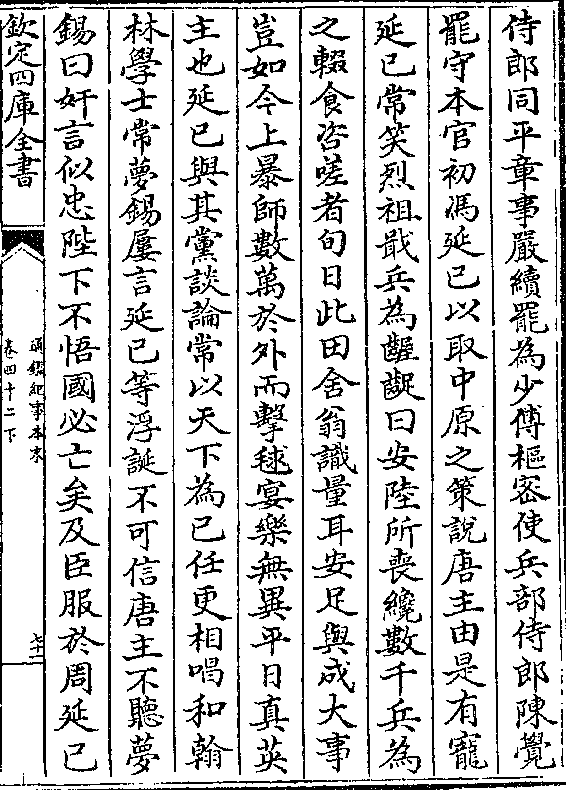 侍郎同平章事嚴續罷為少傅樞密使兵部侍郎陳覺
罷守本官初馮延已以取中原之策說唐主由是有寵
延已常笑烈祖戢兵為齷齪曰安陸所喪纔數千兵為
之輟食咨嗟者旬日此田舍翁識量耳安足與成大事
豈如今上暴師數萬於外而擊毬宴樂無異平日真英
主也延已與其黨談論常以天下為已任更相唱和翰
林學士常夢錫屢言延已等浮誕不可信唐主不聽夢
錫曰奸言似忠陛下不悟國必亡矣及臣服於周延已
欽定四庫全書
通鑑紀事本末
卷四十二下
七十一